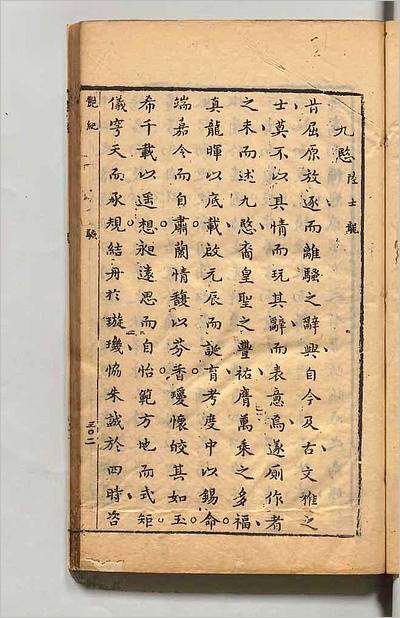 九愍 陸士龍
昔屈原放逐而離騷之辭興自今及古文雅之
士莫不以其情而玩其辭而表意焉遂厠作者
之末而述九愍裔皇聖之豐祐膺萬乘之多福
真龍暉以底載啟元辰而誕育考度中以錫命
端嘉令而自肅蘭情馥以芬香瓊懷皎其如玉
希千載以遥想昶遠思而自怡範方地而式矩
儀穹天而承規結丹於璇璣恊朱誠於四時咨
艷紀 騷 三〇二